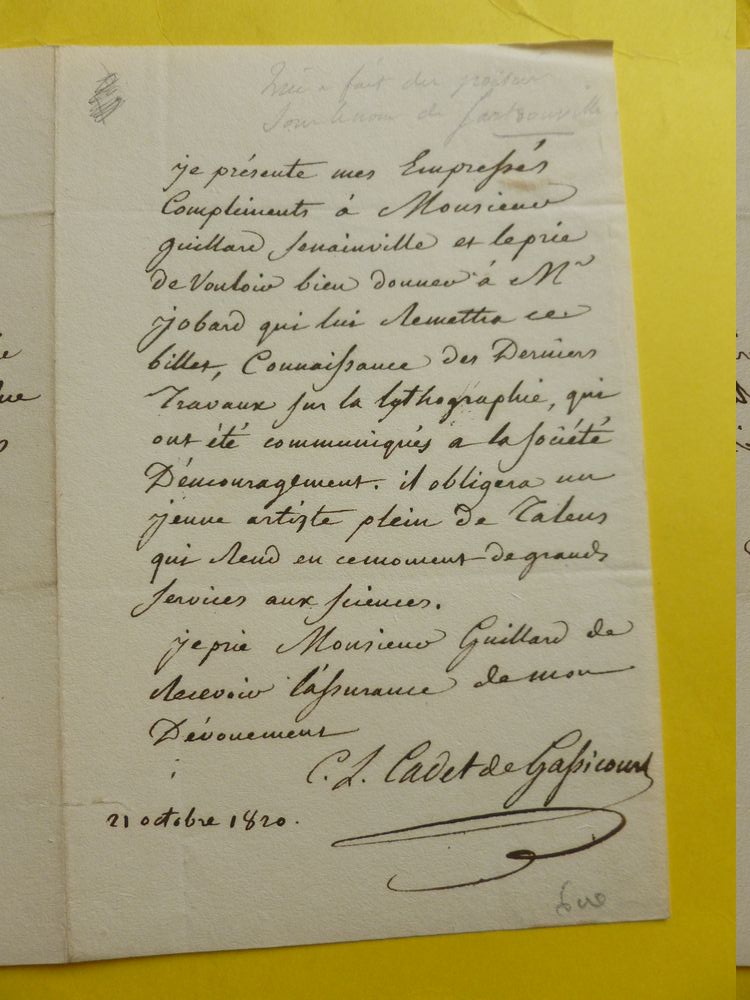 a fait des
sous le nom de Sartrouville
je présente mes Empressés
Compliments à Monsieur
guillard senainville et le prie
de Vouloir bien donner à Mr
jobard qui lui Remettra ce
billet, Connaissance des Derniers
Travaux sur la lythographie, qui
ont été communiqués a la société
D'émcouragement. il obligera un
jeune artiste plein de Talens
qui Rend en cemoment de grands
services aux sciences.
je prie Monsieur Guillard de
Recevoir l'assurance de mon
Dévouement
C. L. Cadet de Gassicourt
21 octobre 1820.